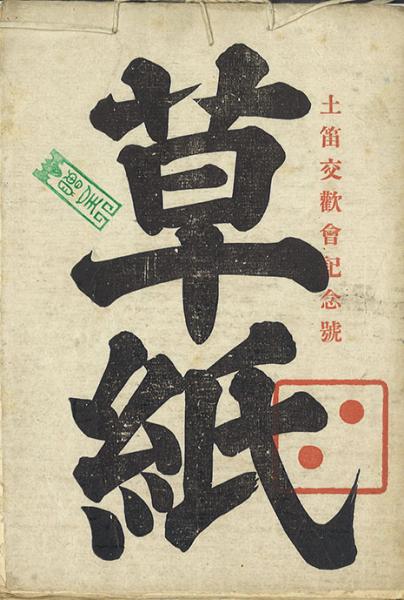 土笛交歡會記念號
草紙